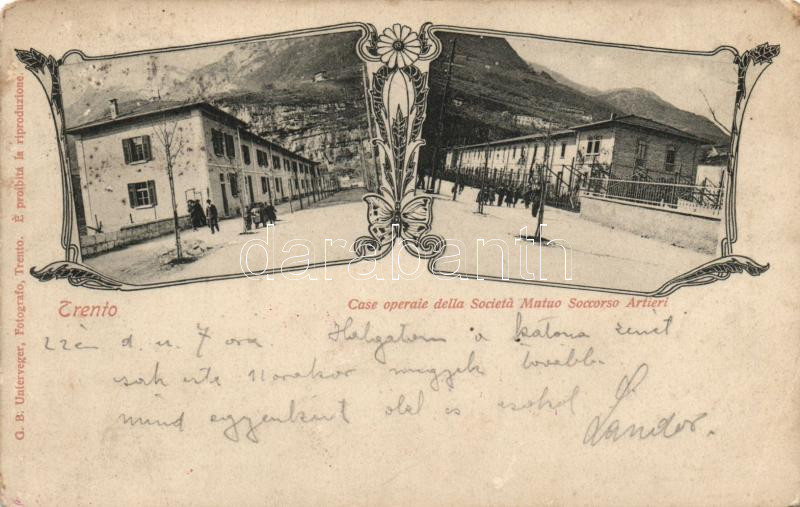 G. B. Unterveger, Fotografo, Trento. È proibita la riproduzione.
darabanth
Trento
Case operaie della Società Mutuo Soccorso Artieri
22én d. u. 7 óra. Halgatom a katona zenét
csak este 11 órakor megyek tovább.
mind egyenként ölel és csókol
Sándor.